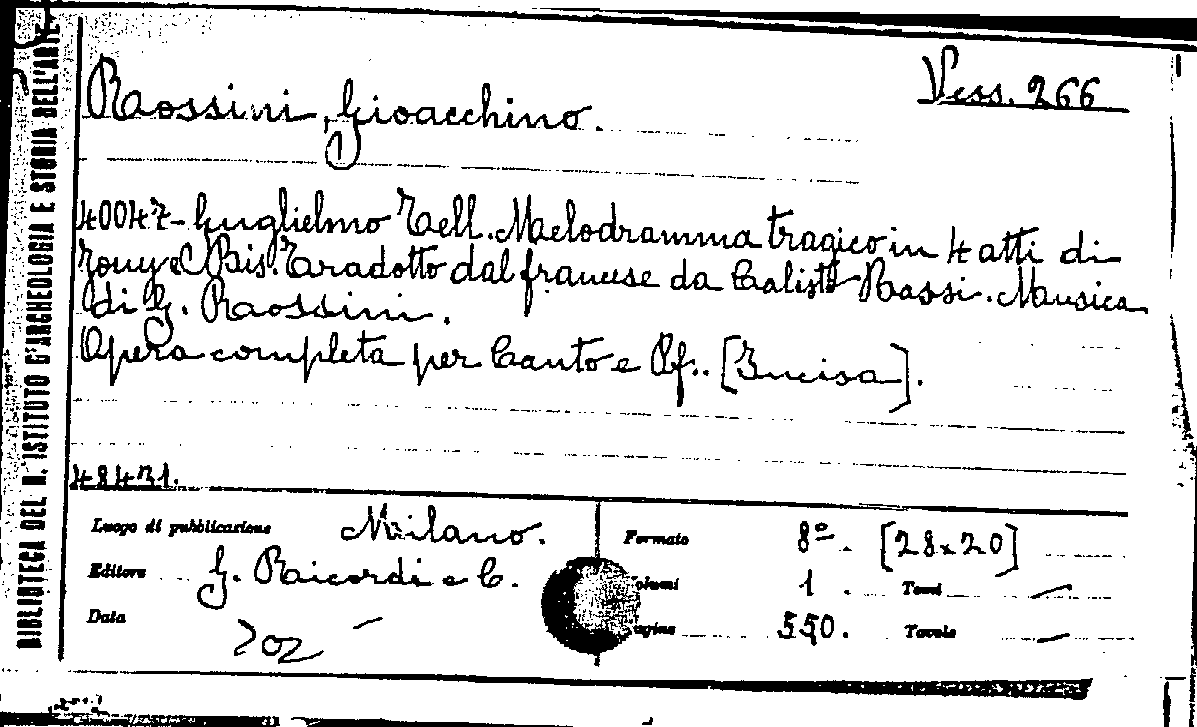 BIBLIOTECA DEL R. ISTITUTO D'ARCHEOLOGIA E STORIA DELL'ARTE
Vess. 266
Rossini, Gioacchino.
40047- Guglielmo Tell. Melodramma tragico in 4 atti di
Jouy e Bis. Tradotto dal francese da Calisto Bassi. Musica
di G. Rossini.
Opera completa per Canto e Pf.. [Incisa].
48431.
Luogo di pubblicazione Milano.
Editore G. Ricordi e C.
Data
202
Formato 8º. [28x20]
olumi 1. Tomi —
agine 550. Tavole —